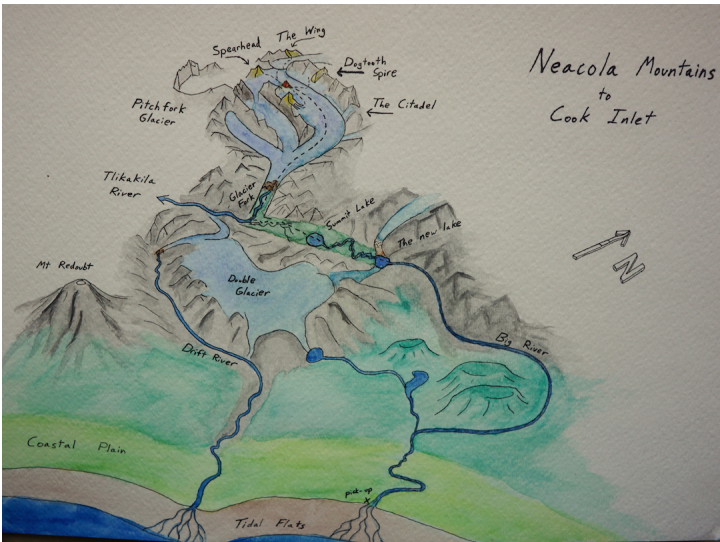 Neacola Mountains
to
Cook Inlet
The Wing
Spearhead
Dogtooth
Spire
Pitchfork
Glacier
The Citadel
Tlikakila
River
Glacier
Fork
Summit Lake
The new lake
N
Mt Redoubt
Double
Glacier
Drift River
Big River
Coastal Plain
pick-up
x
Tidal Flats